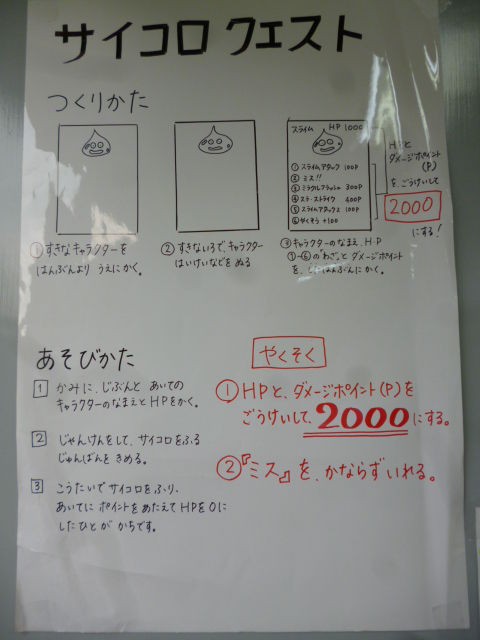 サイコロ クエスト
つくりかた
スライム HP 1000
① スライムアタック 100P
② ミス!!
③ ミラクルフラッシュ 300P
④ ステ・ストライク 400P
⑤ スライムアタック2 100P
⑥ やくそう +100
HPと
ダメージポイント
(P)
を、ごうけいして
2000
にする!
①すきなキャラクターを
はんぶんより うえにかく。
②すきないろで、キャラクター
はいけいなどを ぬる
③キャラクターのなまえ、HP
①~⑥の"わざ"と ダメージポイント
を、したはんぶんに かく。
あそびかた
1 かみに、じぶんと あいての
キャラクターのなまえとHPをかく。
2 じゃんけんをして、サイコロをふる
じゅんばんを きめる。
3 こうたいで サイコロをふり、
あいてに ポイントをあたえて HPを0に
したひとが かちです。
やくそく
①HPと、ダメージポイント(P)を
ごうけいして、2000にする。
②『ミス』を、かならず いれる。